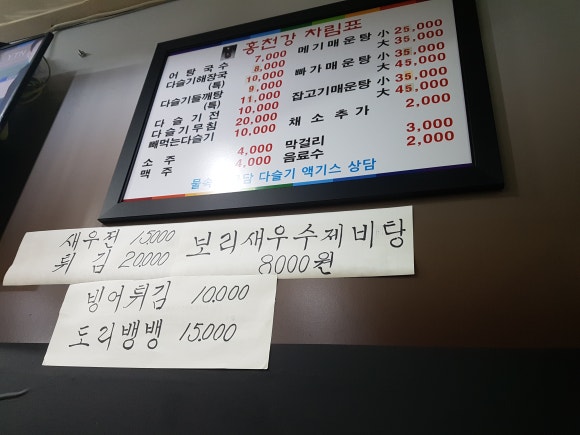 홍천강 차림표
어 탕 국 수 7,000
다슬기해장국 8,000
(특) 10,000
다슬기들깨탕 9,000
(특) 11,000
다 슬 기 전 10,000
다슬기무침 20,000
빼먹는다슬기 10,000
소 주 4,000
맥 주 4,000
메기매운탕 小 25,000
大 35,000
빠가매운탕 小 35,000
大 45,000
잡고기매운탕 小 35,000
大 45,000
채 소 추 가 2,000
막걸리 3,000
음료수 2,000
다슬기 액기스 상담
새우전 15000
튀 김 20000
보리새우수제비탕
8000원
빙어튀김 10.000
도리뱅뱅 15.000